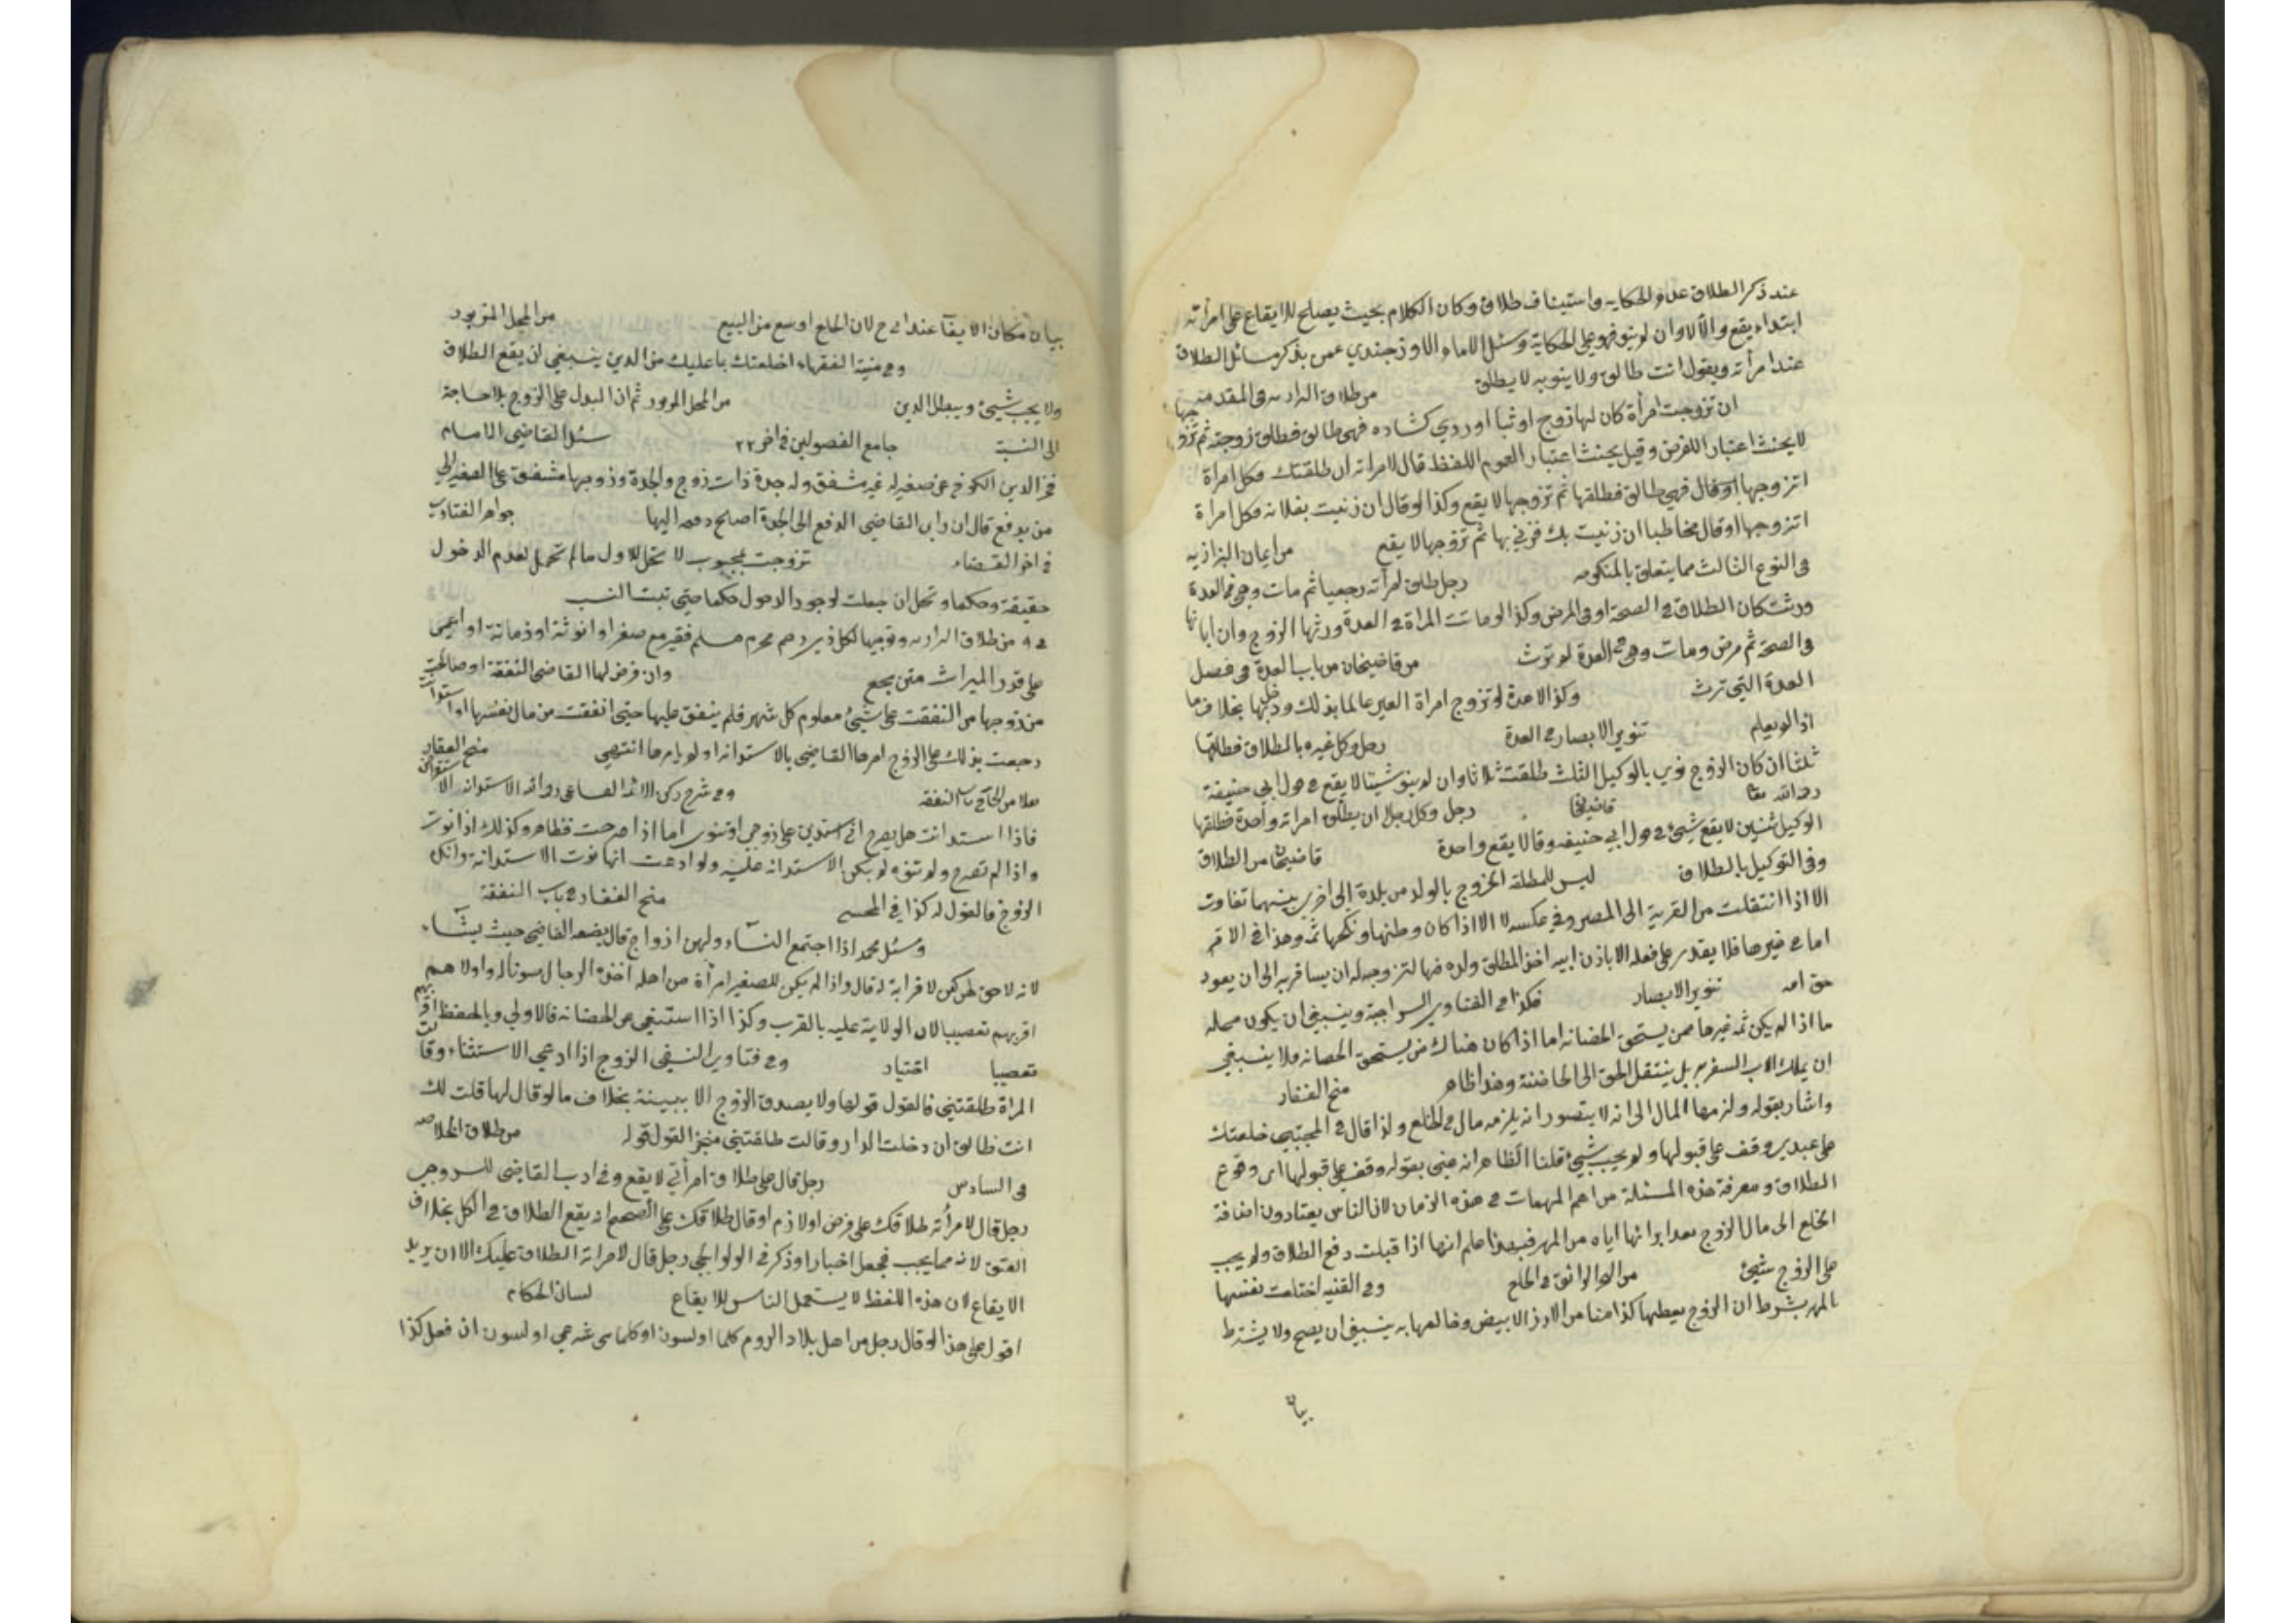 عند ذكر الطلاق على الحكايه واستيناف طلاق وكان الكلام بحيث يصلح للايقاع على امرأته
ابتداء يقع والا لا وان لم ينو فهو على الحكاية وسئل الامام الاوزجندي عمن يذكر مسائل الطلاق
عند امرأته ويقول انت طالق ولا ينويه لا يطلق من طلاق البزازيه في المقدمة
ان تزوجت امرأة كان لها زوج او ثبا او روى كشاده فهي طالق فطلق زوجته ثم تزوجها
لا يحنث اعتبار اللغرض وقيل يحنث اعتبار العموم اللفظ قال لامرأته ان طلقتك فكل امرأة
اتزوجها او قال فهي طالق فطلقها ثم تزوجها لا يقع وكذا لو قال ان زنيت بفلانه فكل امرأة
اتزوجها او قال مخاطبا ان زنيت بك فزنى بها ثم تزوجها لا يقع من ايمان البزازيه
فى النوع الثالث مما يتعلق بالمنكوحه رجل طلق امرأته رجعيا ثم مات وهي في العدة
ورثت كان الطلاق في الصحة او في المرض وكذا لو ماتت المرأة في العدة ورثها الزوج وان ابانها
فى الصحة ثم مرض ومات وهى فى العدة لم ترث من قاضيخان من باب العدة فى فصل
العدة التي ترث وكذا لا عدة لو تزوج امراة الغير عالما بذلك ودخل بها بخلاف ما
اذا لم يعلم تنوير الابصار في العدة رجل وكل غيره بالطلاق فطلقها
ثلثا ان كان الزوج نوى بالوكيل الثلث طلقت ثلاثا وان لم ينو شيئا لا يقع في قول ابي حنيفة
رحمه الله تعا قاضيخا رجل وكل رجلا ان يطلق امراته واحدة فطلقها
الوكيل ثنتين لا يقع شيئ في قول ابي حنيفه وقالا يقع واحدة قاضيخان من الطلاق
وفى التوكيل بالطلاق ليس للمطلقه الخروج بالولد من بلدة الى اخرى بينهما تفاوت
الا اذا انتقلت من القرية الى المصر وفي عكسه لا الا اذا كان وطنها ونكحها ثمه وهذا في الام
اما في غيرها فلا يقدر على نقله الا باذن ابيه اخذ المطلق ولده منها لتزوجها له ان يسافر به الى ان يعود
حق امه تنوير الابصار هكذا في الفتاوى السراجية وينبغي ان يكون محله
ما اذا لم يكن ثمه غيرها ممن يستحق الحضانه اما اذا كان هناك من يستحق الحضانه فلا ينبغي
ان يملك الاب السفر به بل ينتقل الحق الى الحاضنة وهذا ظاهر منح الغفار
واشار بقوله ولزمها المال الى انه لا يتصور ان يلزمه مال في الخلع ولذا قال في المجتبي خلعتك
على عبدي وقف على قبولها ولم يجب شيئ قلنا الظاهر انه عنى بقوله وقف على قبولها اى وقوع
الطلاق ومعرفة هذه المسئلة من اهم المهمات في هذه الزمان لان الناس يعتادون اضافة
الخلع الى مال الزوج بعد ابرائها اياه من المهر فبهذا علم انها اذا قبلت وقع الطلاق ولم يجب
على الزوج شيئ من البحر الرائق في الخلع وفي القنيه اختلعت نفسها
بالمهر بشرط ان الزوج يعطيها كذا منا من الارز الابيض وخالعها به ينبغي ان يصح ولا يشترط
بيان
بيان مكان الايفآء عند ابي ح لان الخلع اوسع من البيع من المحل المزبور
وفي منية الفقهاء اخلعتك بما عليك من الدين ينبغي ان يقع الطلاق
ولا يجب شيئ ويبطل الدين من المحل المزبور ثم اذا البدل على الزوج بلا حاجة
الى النية جامع الفصولين فى اخر ٢٢ سئل القاضي الامام
فخر الدين الكوفي عن صغير له غير مشفق وله جدة ذات زوج والجدة وزوجها مشفق على الصغير الى
من يدفع قال ان رأى القاضي الدفع الى الجدة اصلح دفعه اليها جواهر الفتاوى
في اخر القضاء تزوجت بمجبوب لا تحل للاول ما لم تحبل لعدم الدخول
حقيقة وحكما وتحل ان حبلت لوجود الدخول حكما حتى ثبت النسب
في ٩ من طلاق البزازيه ونوجبها لكل ذي رحم محرم مسلم فقير مع صغر او انوثة او زمانة او اعمى
على قدر الميراث متن مجمع وان فرض لها القاضى النفقة او صالحت
من زوجها من النفقت على شيئ معلوم كل شهر فلم ينفق عليها حتى انفقت من مال نفسها او استدانت
رجعت بذلك على الزوج امرها القاضي بالاستدانه او لم يامرها انتهي منح الغفار
نقلا من الخانية في باب النفقه
فاذا استدانت هل يصرح اني استدين على زوجي او تنوى اما اذا صرحت فظاهر وكذلك اذا نوت
واذا لم تصرح ولم تنو لم يكن الاستدانه عليه ولو ادعت انها نوت الاستدانة وانكر
الزوج فالقول له كذا في المجتبى منح الغفار في باب النفقة
وسئل محمد اذا اجتمع النسآء ولهن ازواج قال يضعه القاضي حيث يشآء
لانه لا حق لهن كمن لا قرابة له قال واذا لم يكن للصغير امرأة من اهله اخذه الرجال واولاهم
اقربهم تعصيبا لان الولاية عليه بالقرب وكذا اذا استغنى عن الحضانه فالاولى بالحفظ اقربهم
تعصيبا اختيار وفي فتاوى النسفي الزوج اذا ادعى الاستثناء وقالت
المرأة طلقتني فالقول قولها ولا يصدق الزوج الا ببينة بخلاف ما لو قال لها قلت لك
انت طالق ان دخلت الدار وقالت طلقتني منجز القول قوله من طلاق الخلاصه
فى السادس رجل قال على طلاق امرأتي لا يقع وفى ادب القاضي للسروجي
رجل قال لامرأته طلاقك على فرض او لازم او قال طلاقك على الصحيح انه يقع الطلاق في الكل بخلاف
العتق لانه مما يجب فجعل اخبارا وذكر في الولوالجي رجل قال لامراته الطلاق عليك الا ان يريد
الايقاع لان هذه اللفظ لا يستعمل الناس للايقاع لسان الحكام
اقول على هذا لو قال رجل من اهل بلاد الروم كلما اولسون او اولسون ان فعل كذا